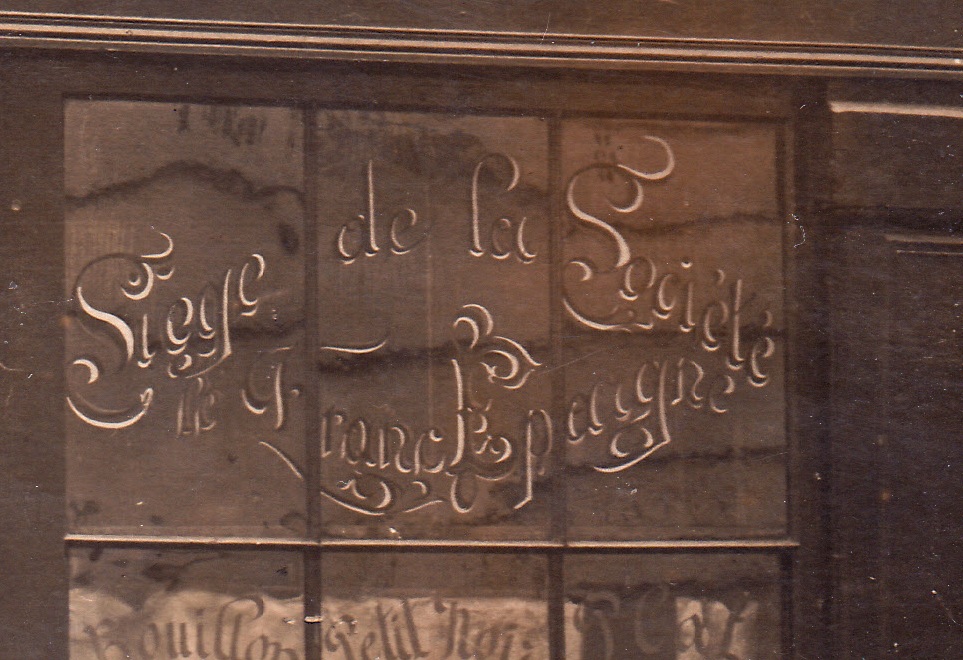 Siège de la Société
le Franc Epagne
Bouillon Petit Noir